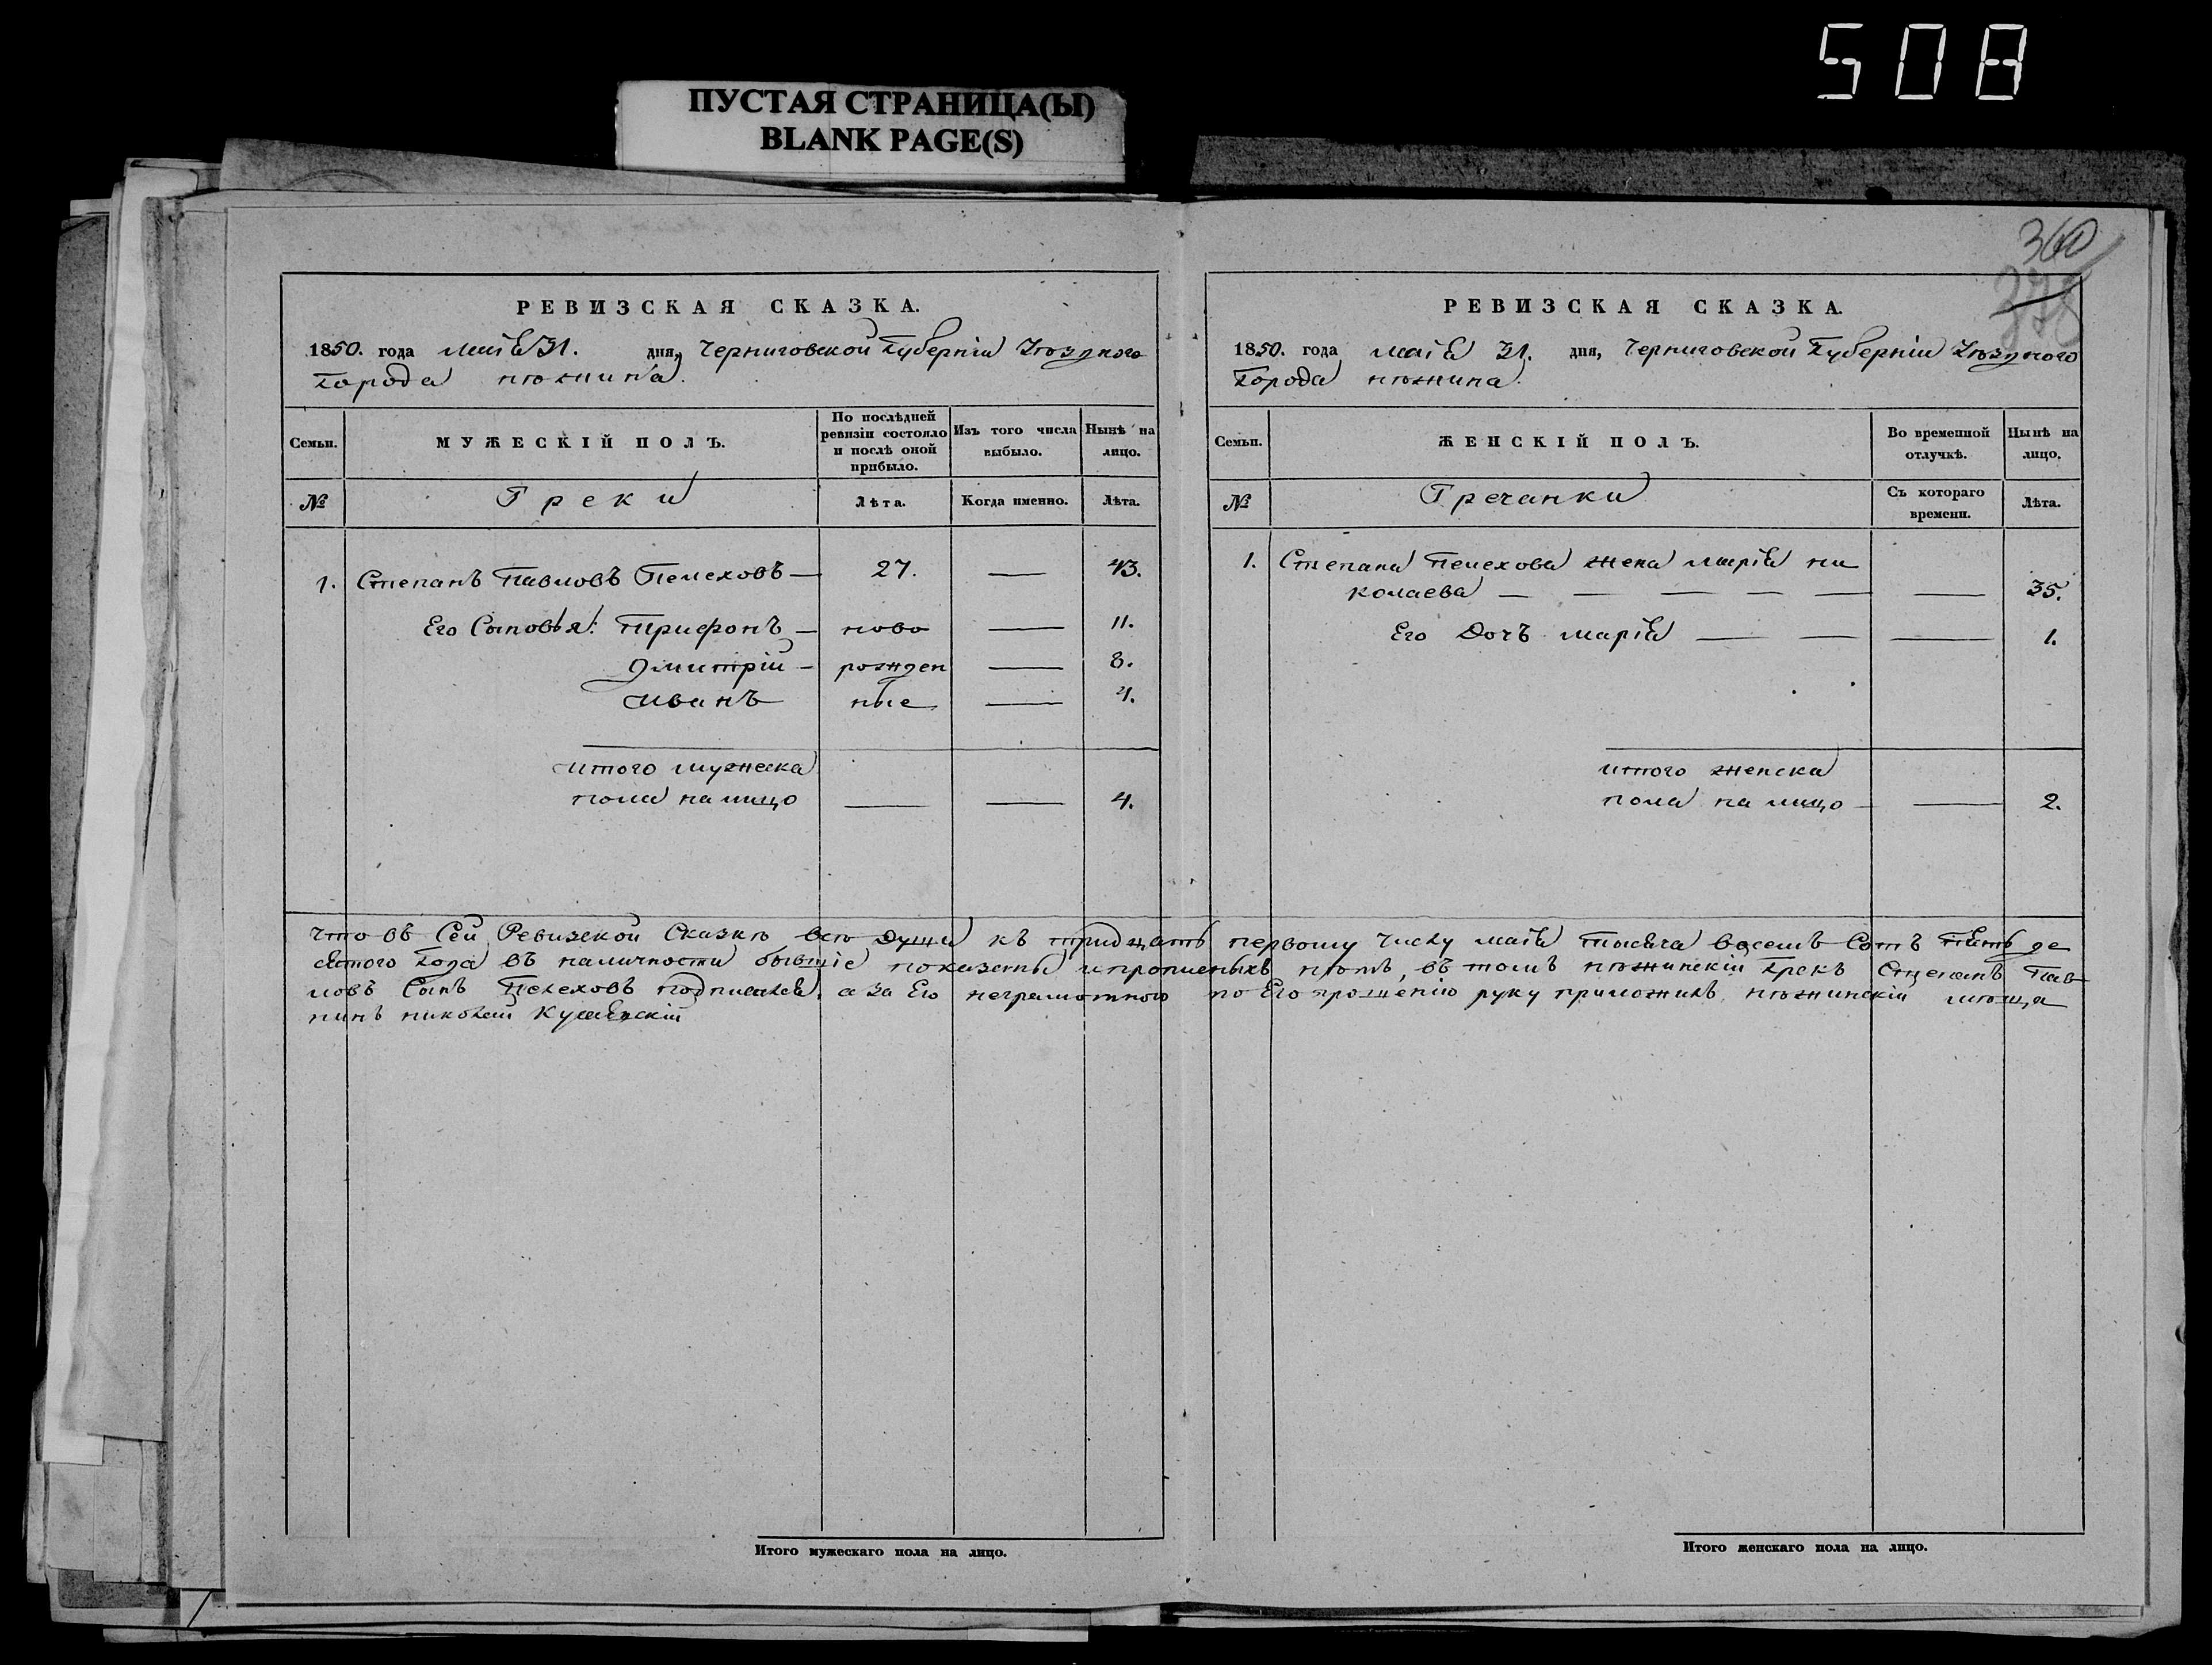 508
ПУСТАЯ СТРАНИЦА(Ы)
BLANK PAGE(S)
360
378
РЕВИЗСКАЯ СКАЗКА.
1850. года маія 31. дня, Черниговской Губерніи Уѣзднаго
Города нѣжина.
Семьи.
МУЖЕСКІЙ ПОЛЪ.
По послѣдней ревизіи состояло и послѣ оной прибыло.
Изъ того числа выбыло.
Нынѣ на лицо.
№
Греки
Лѣта.
Когда именно.
Лѣта.
1. Степанъ Павловъ Пелеховъ — 27. — 43.
Его Сыновья: Трифонъ — ново — 11.
Дмитрій — рожден — 8.
Иванъ ные — 4.
итого мужеска
пола на лицо — — 4.
РЕВИЗСКАЯ СКАЗКА.
1850. года маія 31. дня, Черниговской Губерніи Уѣзднаго
Города нѣжина.
Семьи.
ЖЕНСКІЙ ПОЛЪ.
Во временной отлучкѣ.
Нынѣ на лицо.
№
Гречанки
Съ котораго времени.
Лѣта.
1. Степана Пелехова жена марія ни
колаева — — — — — — 35.
Его Дочъ марія — — — 1.
итого женска
пола на лицо — — 2.
что въ Сей Ревизской Сказкѣ всѣ души къ тридцать первому числу маія тысяча восемъ Сотъ пять де
сятого года въ наличности бывшіе показаны и прописныхъ нѣтъ, въ томъ нѣжинскій Грекъ Степанъ Пав
ловъ Сынъ Пелеховъ подписался, а за Его неграмотного по Его прошенію руку приложилъ нѣжинскій мѣща
нинъ николай
Итого мужескаго пола на лицо.
Итого женскаго пола на лицо.